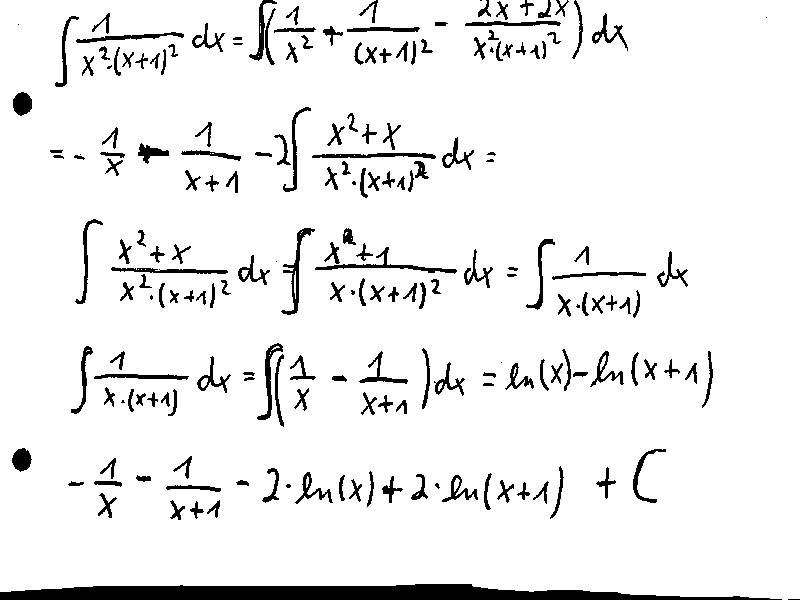 ∫ 1/(x²·(x+1)²) dx = ∫(1/x² + 1/(x+1)² - (2x²+2x)/(x²·(x+1)²)) dx
= - 1/x - 1/(x+1) - 2∫ (x²+x)/(x²·(x+1)²) dx =
∫ (x²+x)/(x²·(x+1)²) dx = ∫ (x+1)/(x·(x+1)²) dx = ∫ 1/(x·(x+1)) dx
∫ 1/(x·(x+1)) dx = ∫(1/x - 1/(x+1)) dx = ln(x)-ln(x+1)
- 1/x - 1/(x+1) - 2·ln(x)+2·ln(x+1) + C